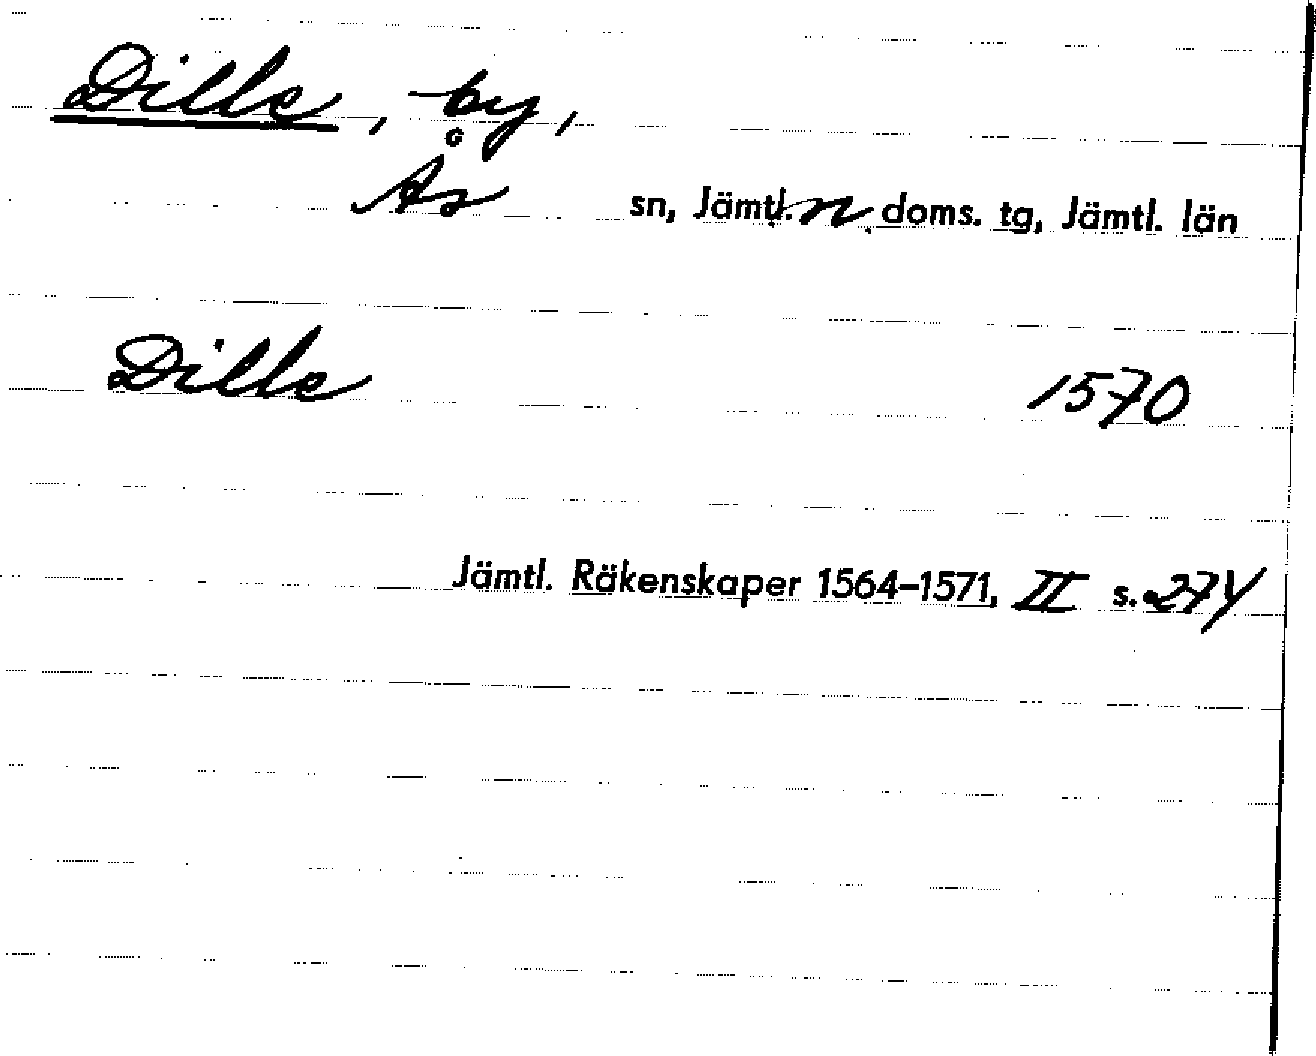 Dille, by,
Ås sn, Jämtl. n. doms. tg, Jämtl. län
Dille 1570
Jämtl. Räkenskaper 1564–1571, II s. 274